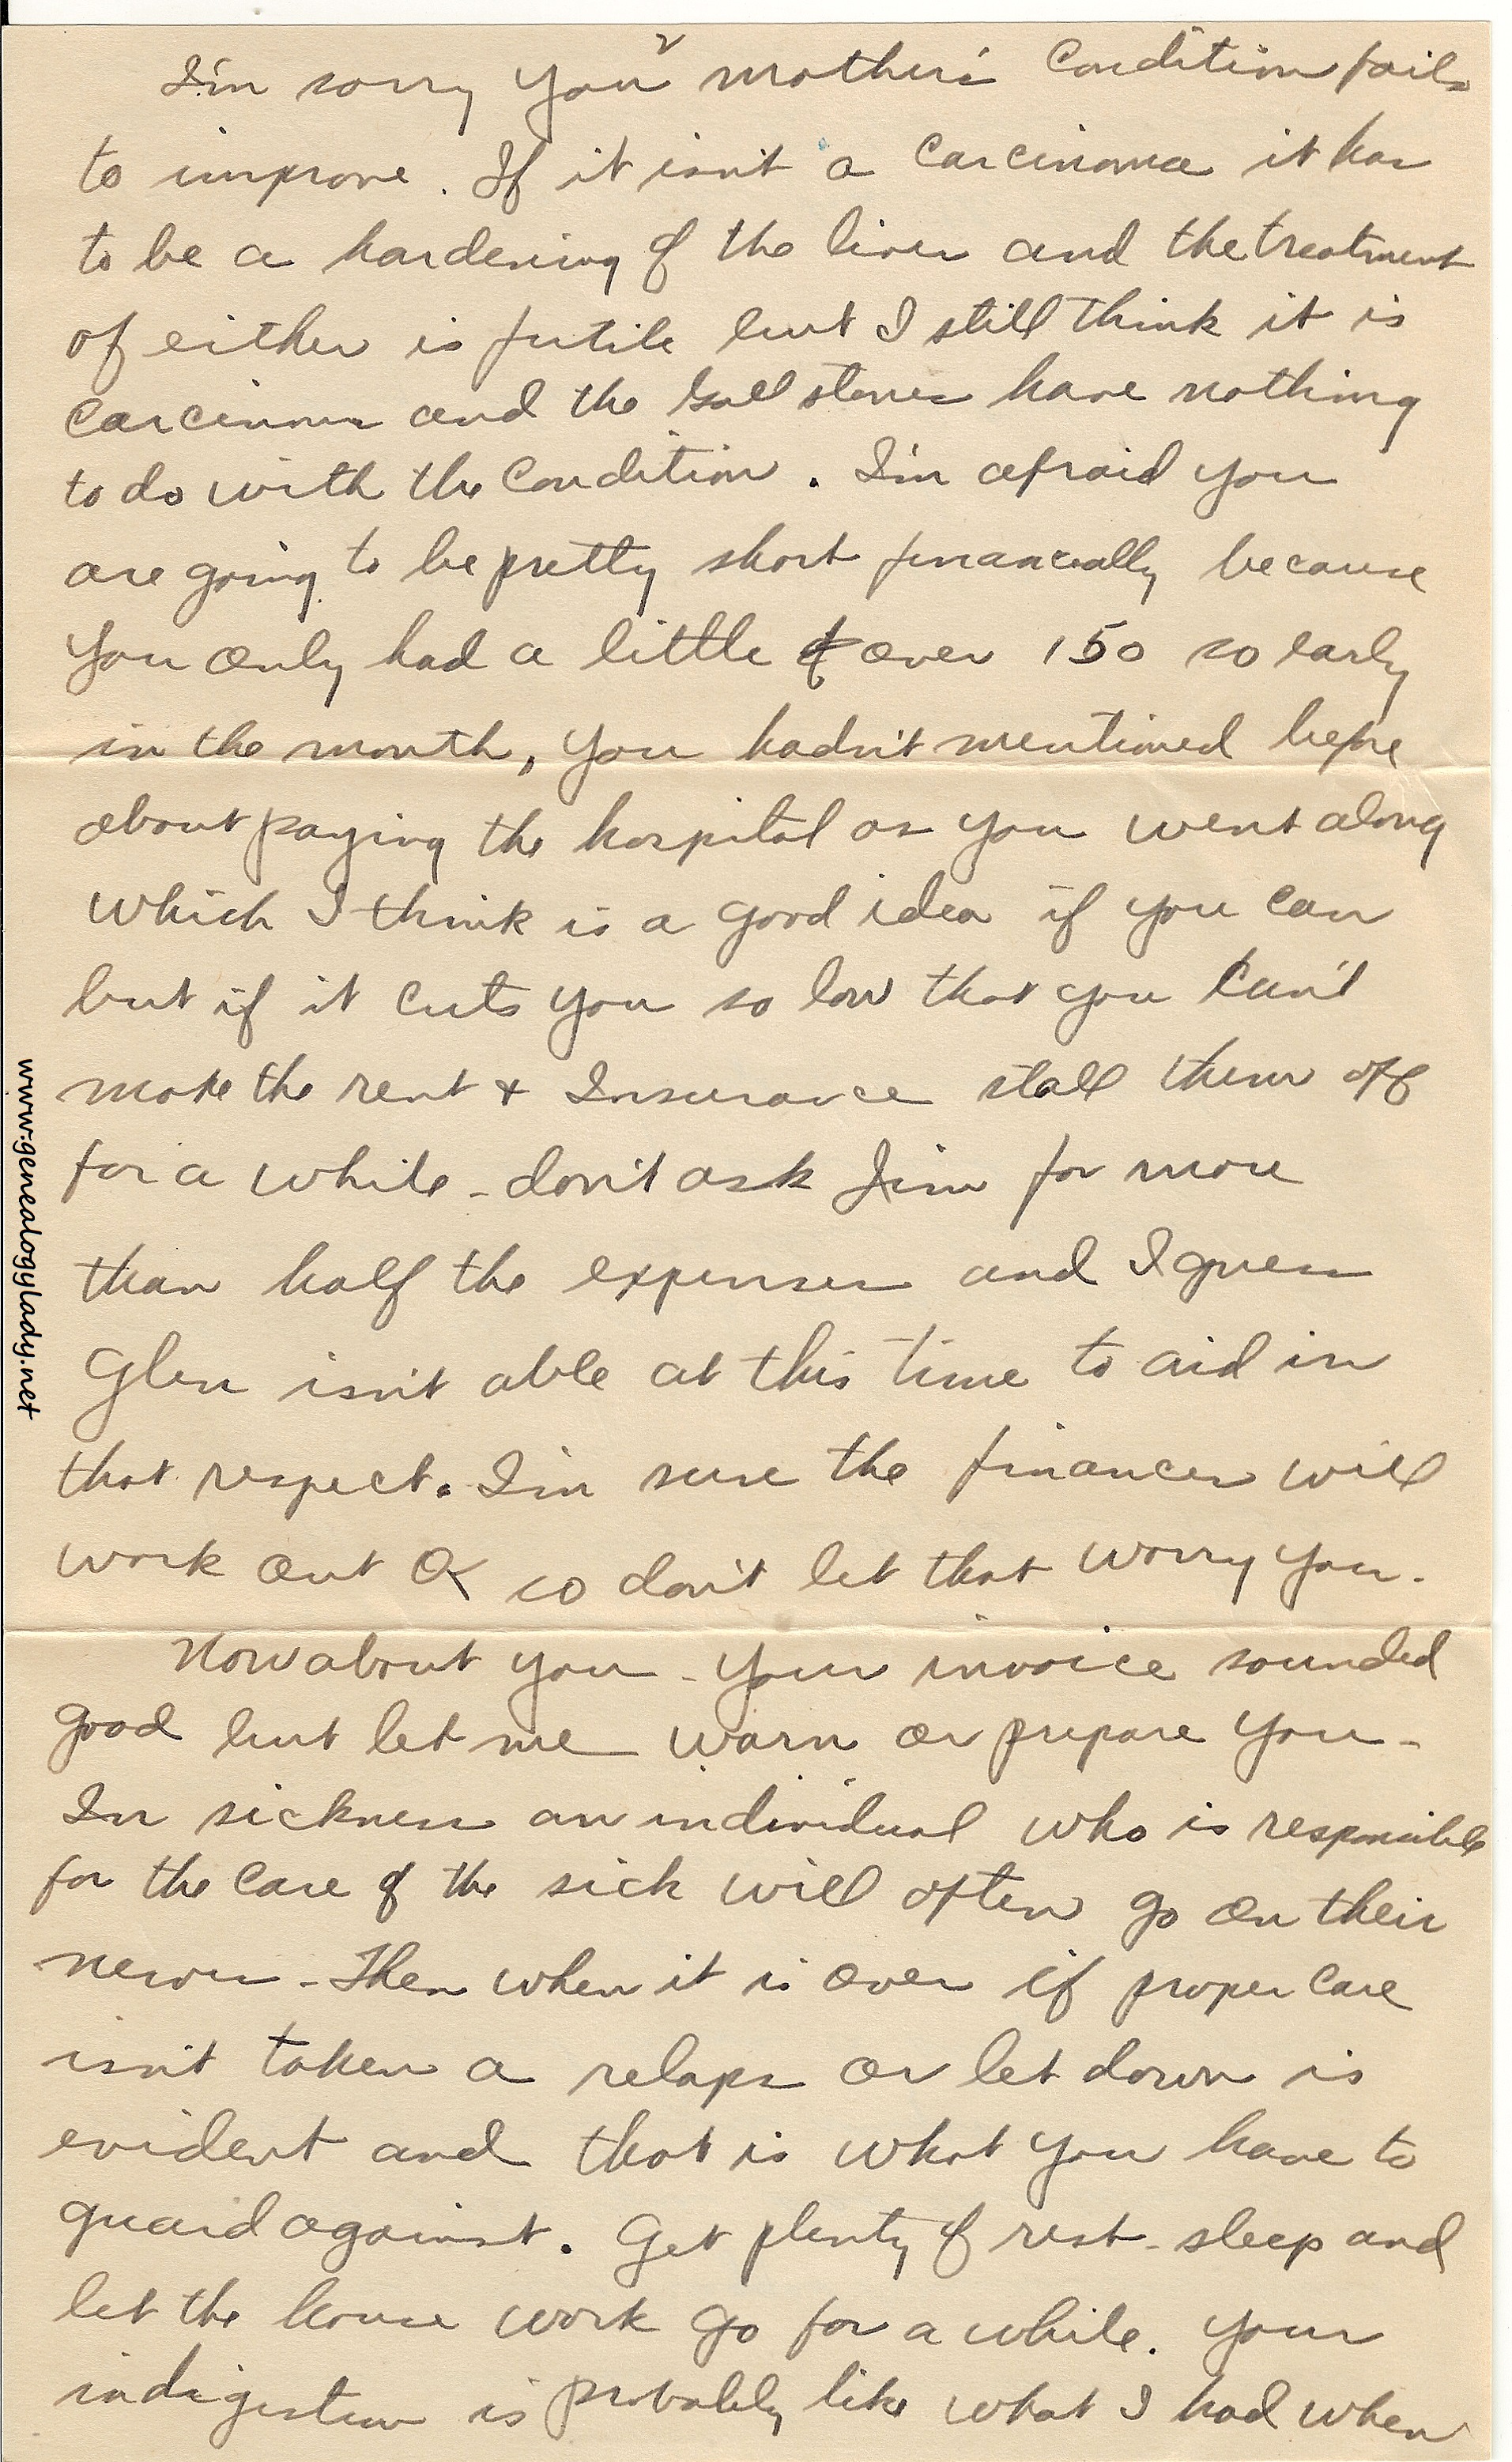 I'm sorry your mother's condition fails
to improve. If it isn't a carcinoma it has
to be a hardening of the liver and the treatment
of either is futile but I still think it is
carcinoma and the gall stones have nothing
to do with the condition. I'm afraid you
are going to be pretty short financially because
you only had a little over 150 so early
in the month, you hadn't mentioned before
about paying the hospital as you went along
which I think is a good idea if you can
but if it cuts you so low that you can't
make the rent & Insurance stall them off
for a while - don't ask Jim for more
than half the expenses and I guess
Glen isn't able at this time to aid in
that respect. I'm sure the finances will
work out OK so don't let that worry you.
Now about you - your invoice sounded
good but let me warn or prepare you -
In sickness an individual who is responsible
for the care of the sick will often go on their
nerves - Then when it is over if proper care
isn't taken a relaps or let down is
evident and that is what you have to
guard against. Get plenty of rest - sleep and
let the house work go for a while. Your
indigestion is probably like what I had when
www.genealogylady.net